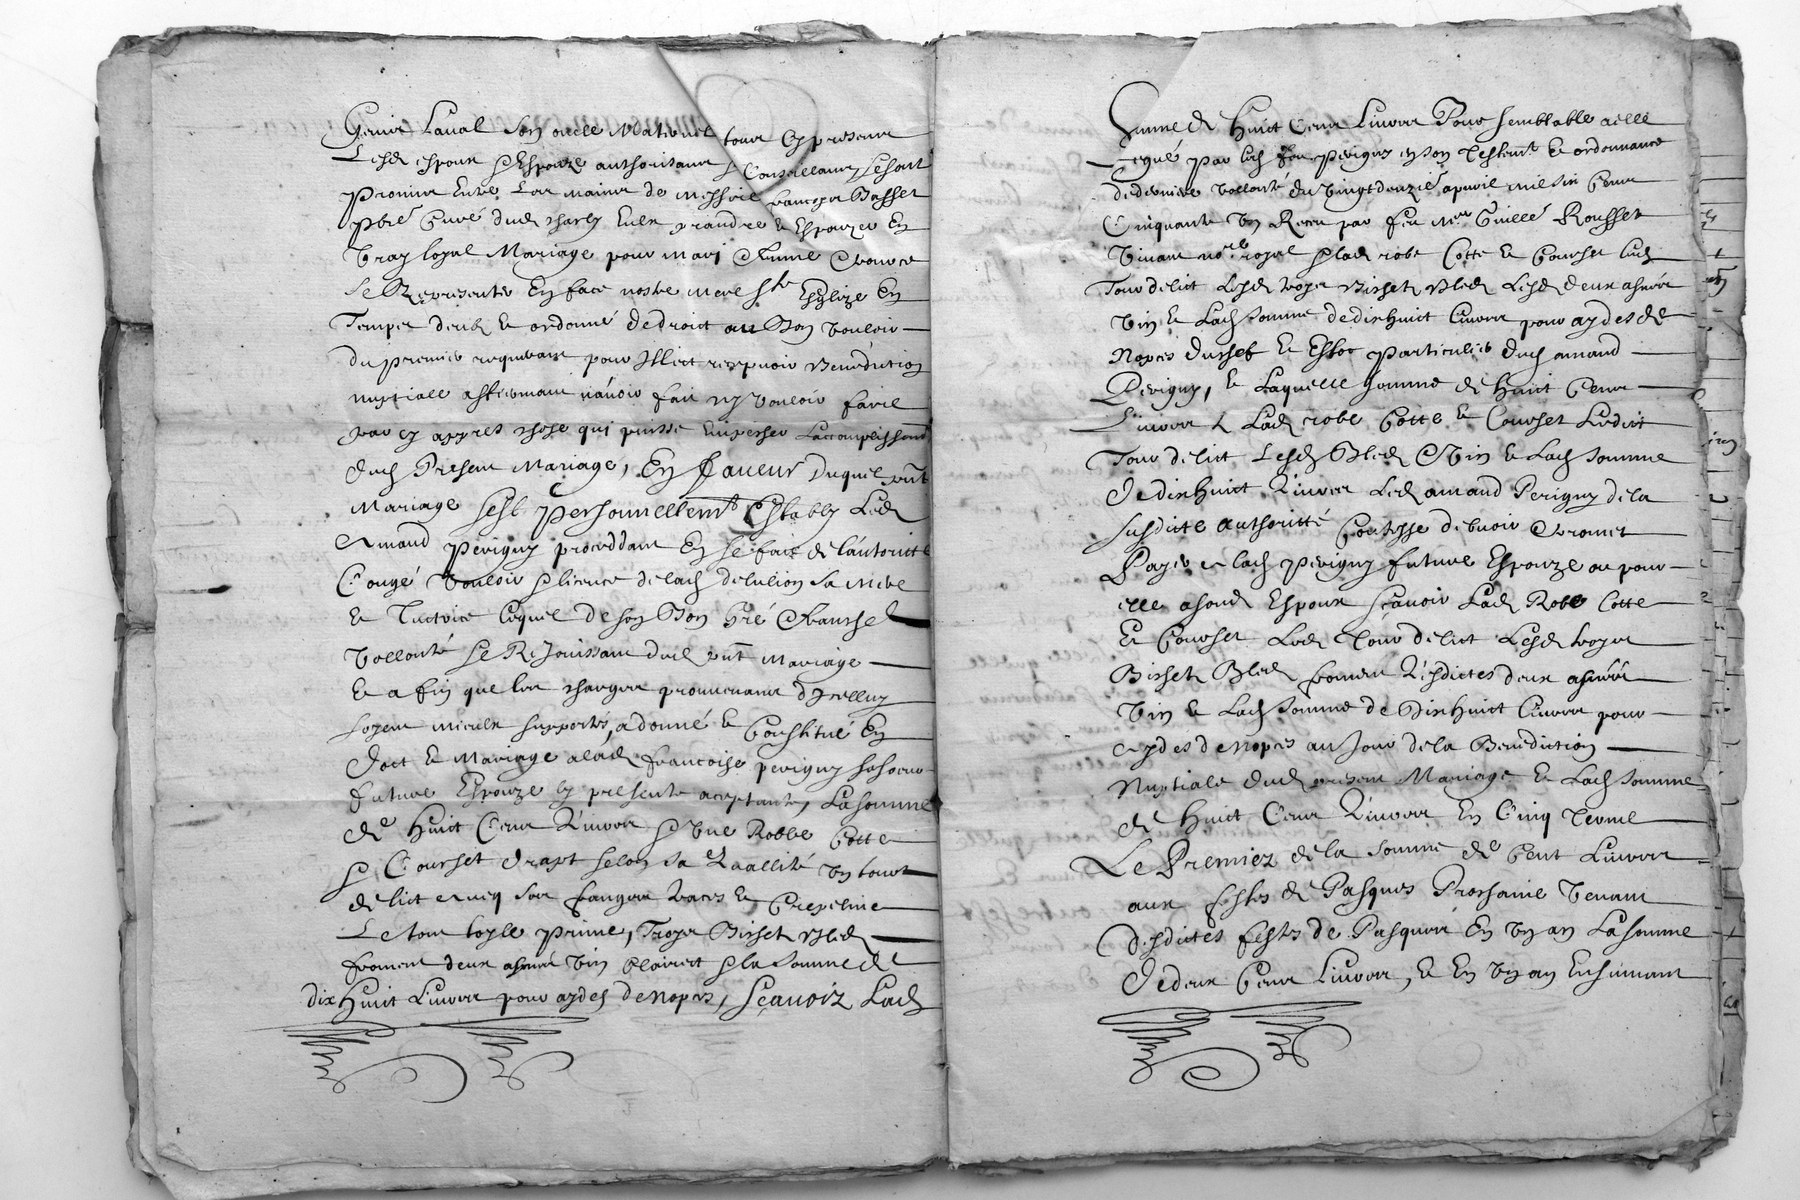 Laval son oncle Maternel tous cy presens
Lesd espoux & Espouze authorisans & Conseillans se sont
promins Entre Les mains de messire françoys Basset
pbre Curé dud Eulx prandre & Espouzer En
vray loyal Mariage pour mary & femme
se Representer En face nostre mere ste Esglize En
Temps deub & ordonné de droict au Bon vouloir
du premier requerant pour Illec recepvoir Benediction
nuptialle affermant n'avoir fait ny vouloir faire
par cy appres chose qui puisse Empescher Laccomplissemt
dud Present Mariage, En faveur Duquel pnt
Mariage sest personnellemt Estably Led
Amand perigny proceddant En se fait de lautoritté
Congé vouloir & licence de lad delulion sa Mere
& Tuctrice lequel de son Bon gré & franche
vollonté se Rejouissant dud pnt Mariage
& a fin que les charges provenant d'Icelluy
soyent mieulx supportés, a donné & Constitué En
doct & Mariage alad françoise perigny sa soeur
future Espouze cy presente acceptante, La somme
de Huict Cens Livres & une Robbe Cotte
& Corset drapt selon sa quallité un tour
de lict avecq ses franges & Crepeline
Le tout toylle prime, Troys Bichet Bled
froment deux asnees vin clairet & la somme de
dix Huict Livres pour aydes de nopces, sçavoir Lad
somme de Huict Cens Livres Pour semblable a elle
Legué par led feu perigny en son Testemt & ordonnance
de derniere vollonté du vingt deuzie apvril mil six Cens
Cinquante un Receu par feu mre Guille Rousset
vivant nore royal & lad robe Cotte & Courset led
Tour de lict Lesd troys Bichet Bled Lesd deux asnees
vin & Lad somme de dix huict livres pour aydes de
Nopces du chef & Estoc particulier dud amand
Perigny, & Laquelle somme de Huict Cens
Livres & Lad robe Cotte & Courset Ledict
Tour de lict Lesd Bled Vin & Lad somme
de dix Huict Livres Led amand Perigny de la
susdicte authoritté Confesse debvoir & promet
Payer a lad perigny future Espouze ou pour
elle a sond Espoux sçavoir Lad Robe Cotte
& Courset Led Tour de lict Lesd troys
Bichet Bled froment Lesdictes deux asnées
vin & Lad somme de Dix Huict livres pour
aydes de nopces au Jour de la Benediction
Nuptiale dud present Mariage & Lad somme
de Huict Cens Livres En Cinq Terme
Le Premiez de la somme de Cent Livres
aux festes de Pasques Prochaine venant
desdictes festes de Pasques En un an La somme
de deux Cens Livres, & En un an Ensuivant